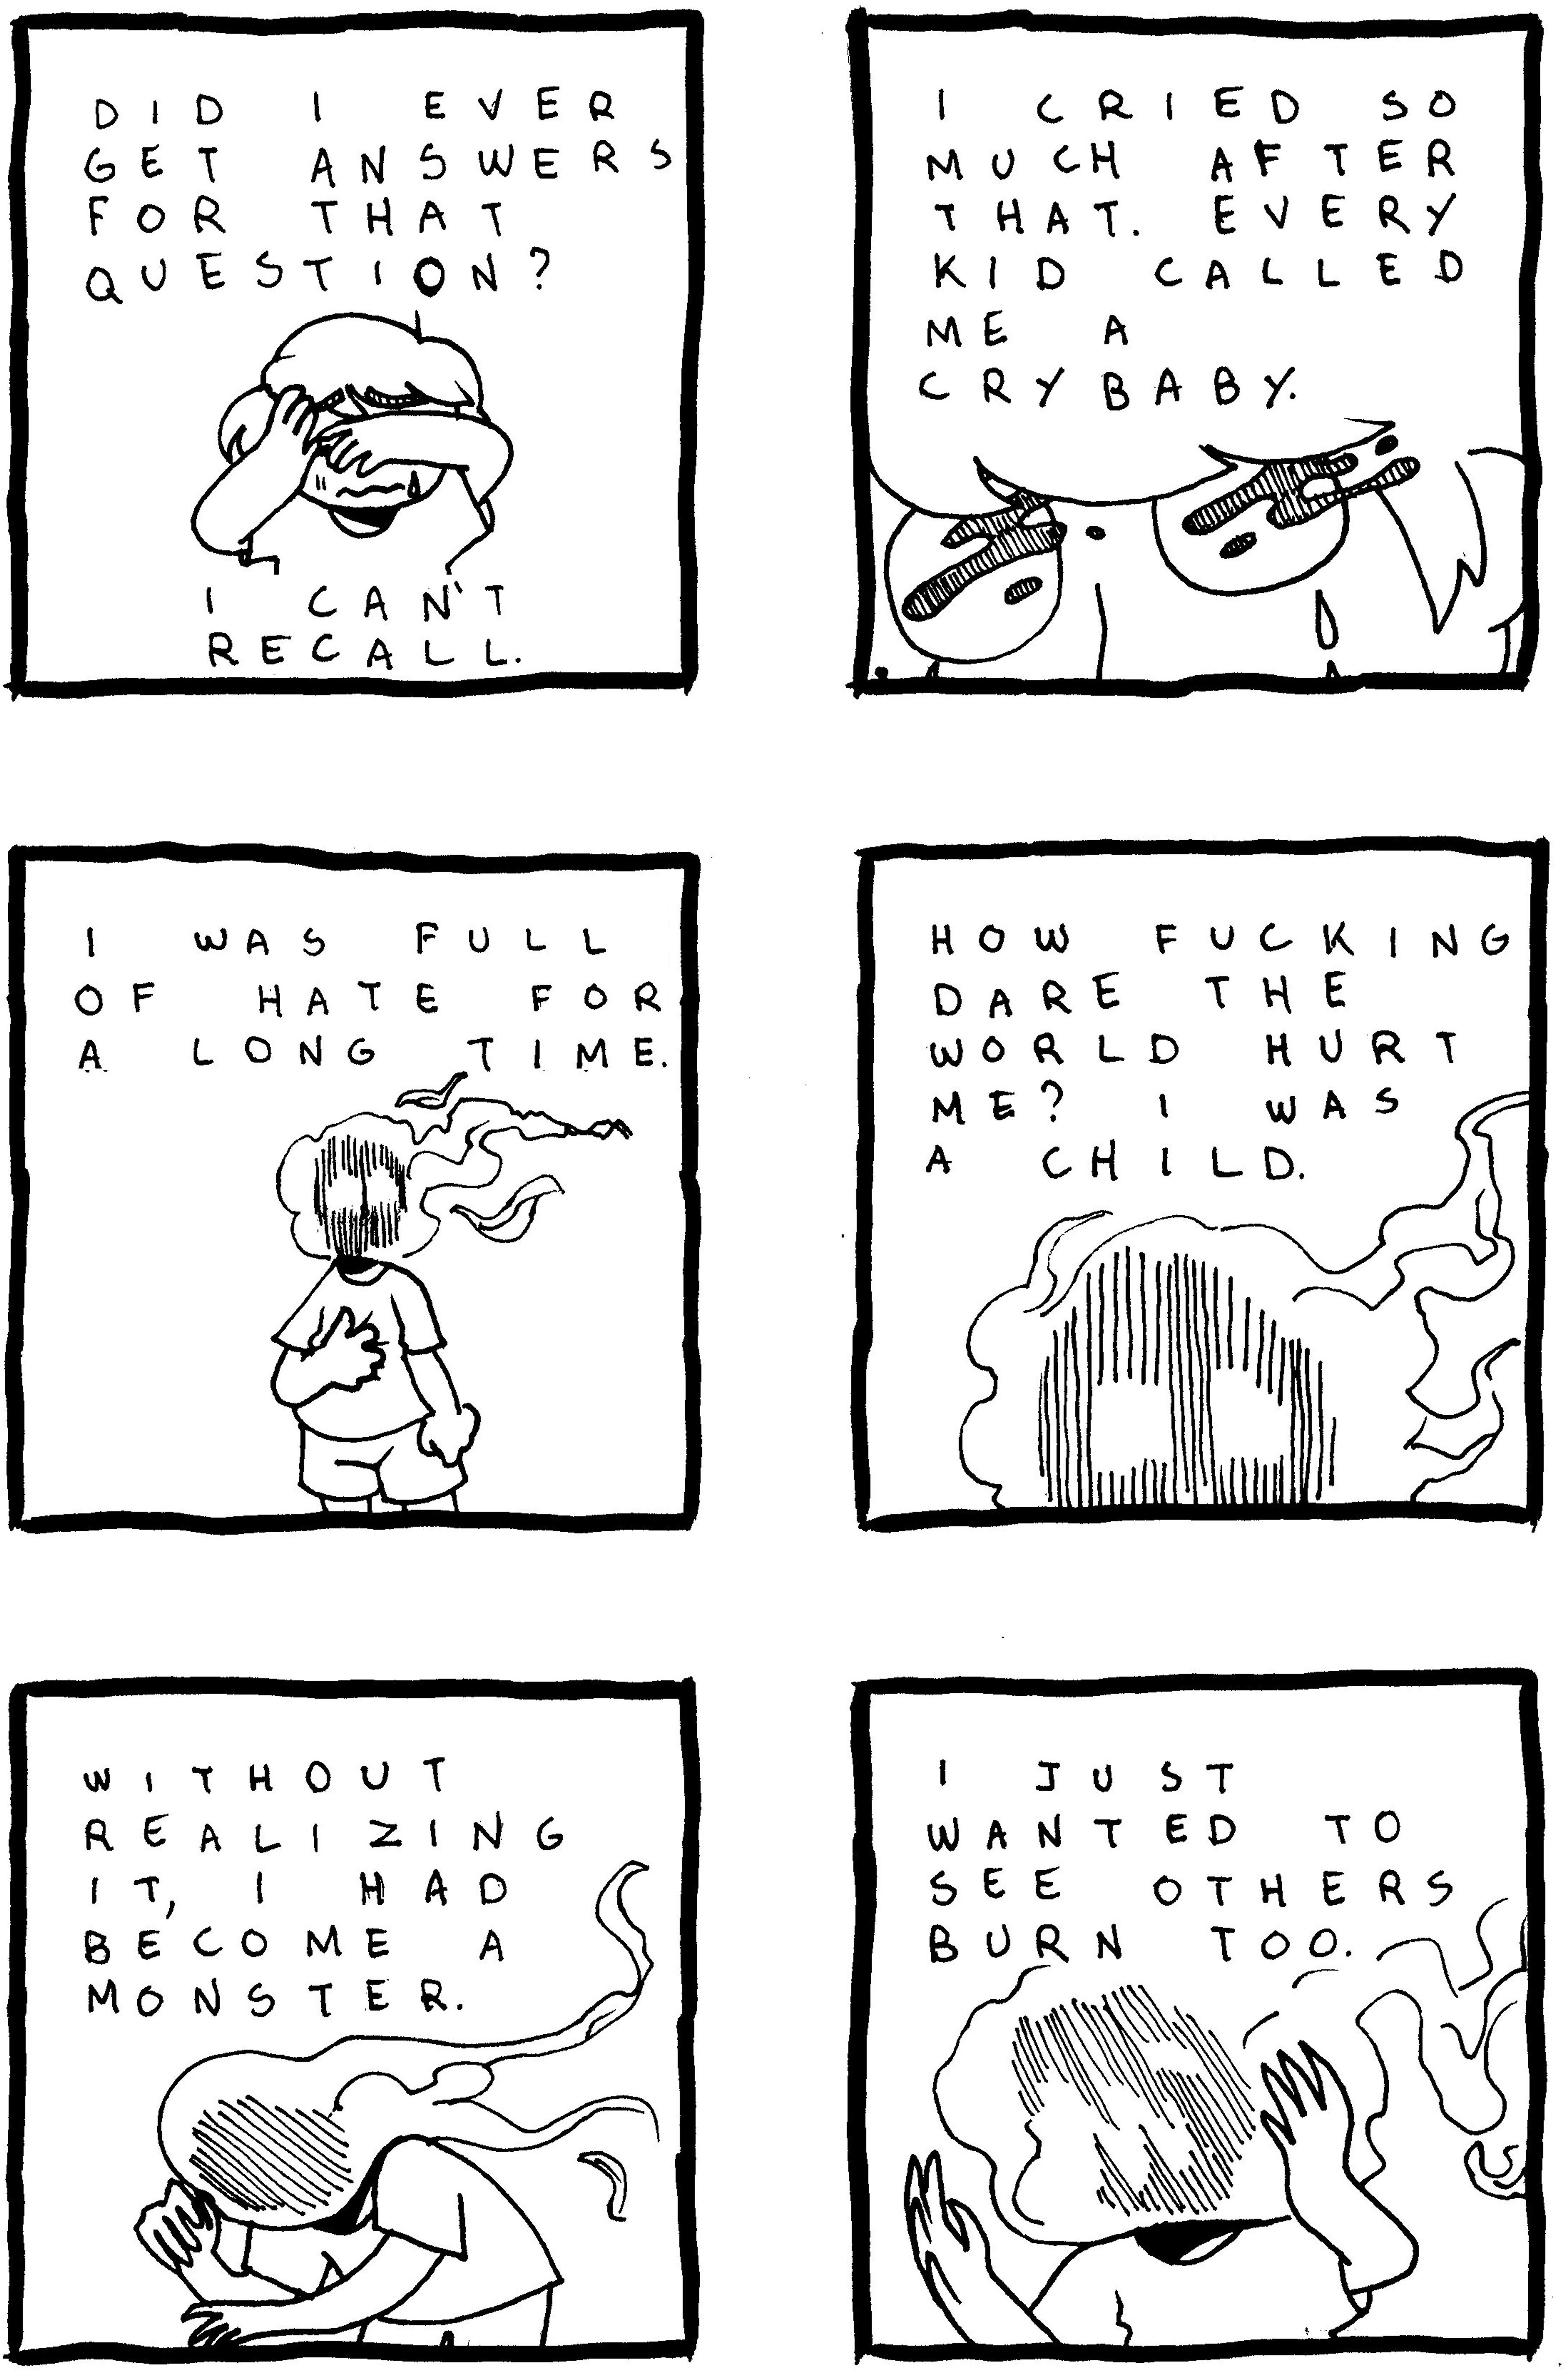 DID I EVER
GET ANSWERS
FOR THAT
QUESTION?
I CAN'T
RECALL.
I CRIED SO
MUCH AFTER
THAT. EVERY
KID CALLED
ME A
CRYBABY.
I WAS FULL
OF HATE FOR
A LONG TIME.
HOW FUCKING
DARE THE
WORLD HURT
ME? I WAS
A CHILD.
WITHOUT
REALIZING
IT, I HAD
BECOME A
MONSTER.
I JUST
WANTED TO
SEE OTHERS
BURN TOO.